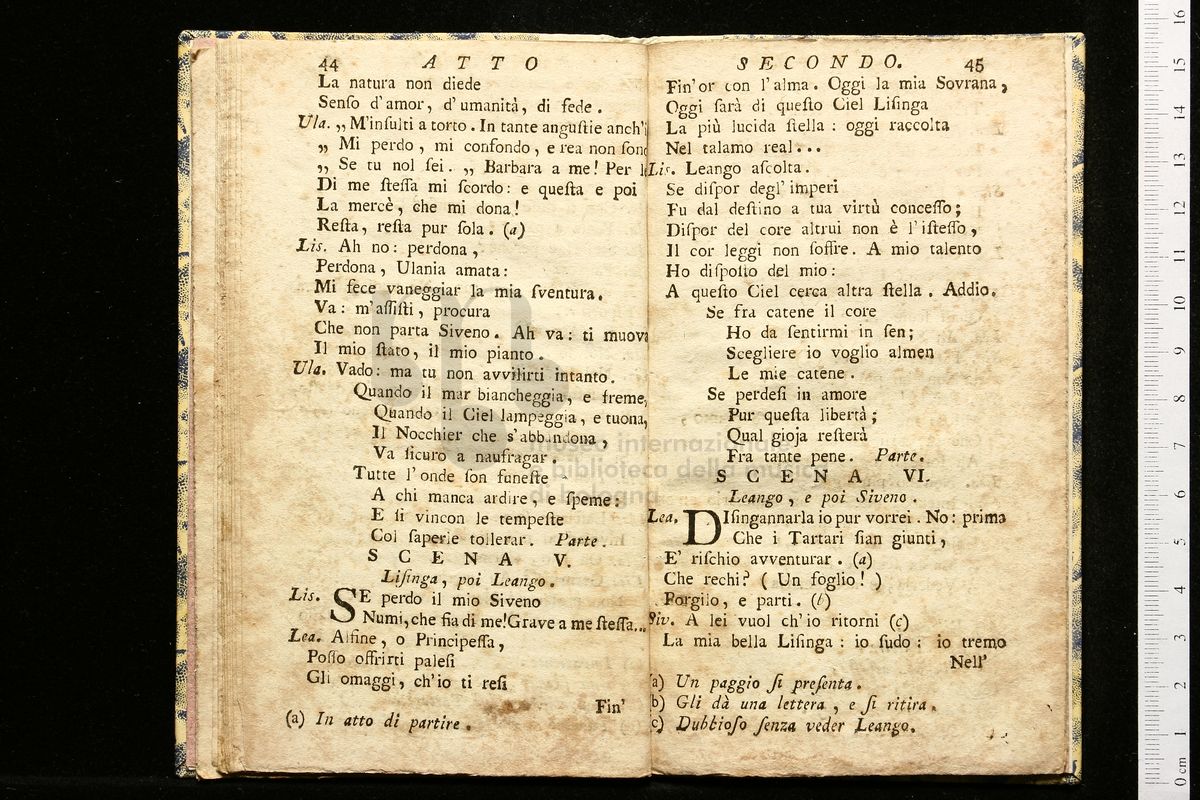 44 ATTO
La natura non diede
Senſo d'amor, d'umanità, di fede.
Ula. „ M'inſulti a torto. In tante anguſtie anch'i
„ Mi perdo, mi confondo, e rea non ſono
„ Se tu nol ſei. „ Barbara a me! Per l
Di me ſteſſa mi ſcordo: e queſta e poi
La mercè, che mi dona!
Reſta, reſta pur ſola. (a)
Lis. Ah no: perdona,
Perdona, Ulania amata:
Mi fece vaneggiar la mia ſventura.
Va: m'aſſiſti, procura
Che non parta Siveno. Ah va: ti muova
Il mio ſtato, il mio pianto.
Ula. Vado: ma tu non avvilirti intanto.
Quando il mar biancheggia, e freme,
Quando il Ciel lampeggia, e tuona,
Il Nocchier che s'abbandona,
Va ſicuro a naufragar.
Tutte l'onde ſon funeſte
A chi manca ardire, e ſpeme:
E ſi vincon le tempeſte
Col ſaperle tollerar. Parte.
SCENA V.
Liſinga, poi Leango.
Lis. SE perdo il mio Siveno
Numi, che ſia di me! Grave a me ſteſſa...
Lea. Alfine, o Principeſſa,
Poſſo offrirti paleſi
Gli omaggi, ch'io ti reſi
Fin'
(a) In atto di partire.
SECONDO. 45
Fin'or con l'alma. Oggi la mia Sovrana,
Oggi ſarà di queſto Ciel Liſinga
La più lucida ſtella: oggi raccolta
Nel talamo real...
Lis. Leango aſcolta.
Se diſpor degl'imperi
Fu dal deſtino a tua virtù conceſſo;
Diſpor del core altrui non è l'iſteſſo,
Il cor leggi non ſoffre. A mio talento
Ho diſpoſto del mio:
A queſto Ciel cerca altra ſtella. Addio.
Se fra catene il core
Ho da ſentirmi in ſen;
Scegliere io voglio almen
Le mie catene.
Se perdeſi in amore
Pur queſta libertà;
Qual gioja reſterà
Fra tante pene. Parte.
SCENA VI.
Leango, e poi Siveno.
Lea. DIſingannarla io pur vorrei. No: prima
Che i Tartari ſian giunti,
E' riſchio avventurar. (a)
Che rechi? (Un foglio!)
Porgilo, e parti. (b)
Siv. A lei vuol ch'io ritorni (c)
La mia bella Liſinga: io ſudo: io tremo
Nell'
(a) Un paggio ſi preſenta.
(b) Gli dà una lettera, e ſi ritira.
(c) Dubbioſo ſenza veder Leango.
museo internazionale
e biblioteca della musica
di bologna
0 cm 1 2 3 4 5 6 7 8 9 10 11 12 13 14 15 16